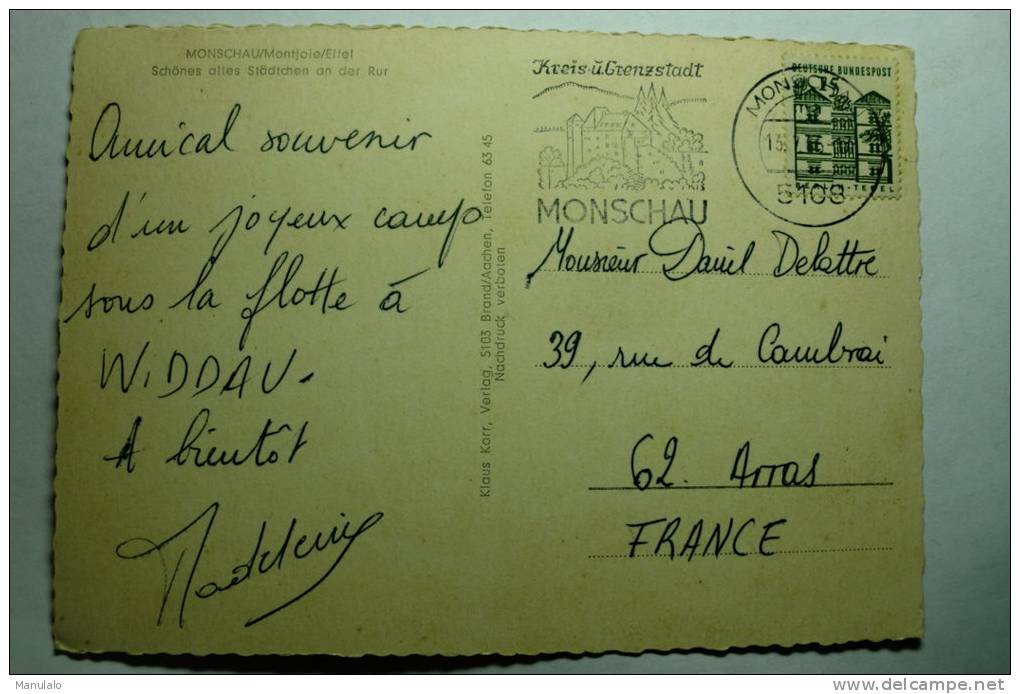 MONSCHAU/Montjoie/Eifel
Schönes altes Städtchen an der Rur
Amical souvenir
d'un joyeux camp
sous la flotte à
WiDDAU.
A bientôt
Madeleine
Klaus Korr, Verlag, 5103 Brand/Aachen, Telefon 63 45
Nachdruck verboten
Kreis-ü.Grenzstadt
MONSCHAU
MONSCHAU
5108
DEUTSCHE BUNDESPOST
15
BERLIN-TEGEL
Monsieur Daniel Delattre
39, rue de Cambrai
62. Arras
FRANCE
Manulalo
www.delcampe.net